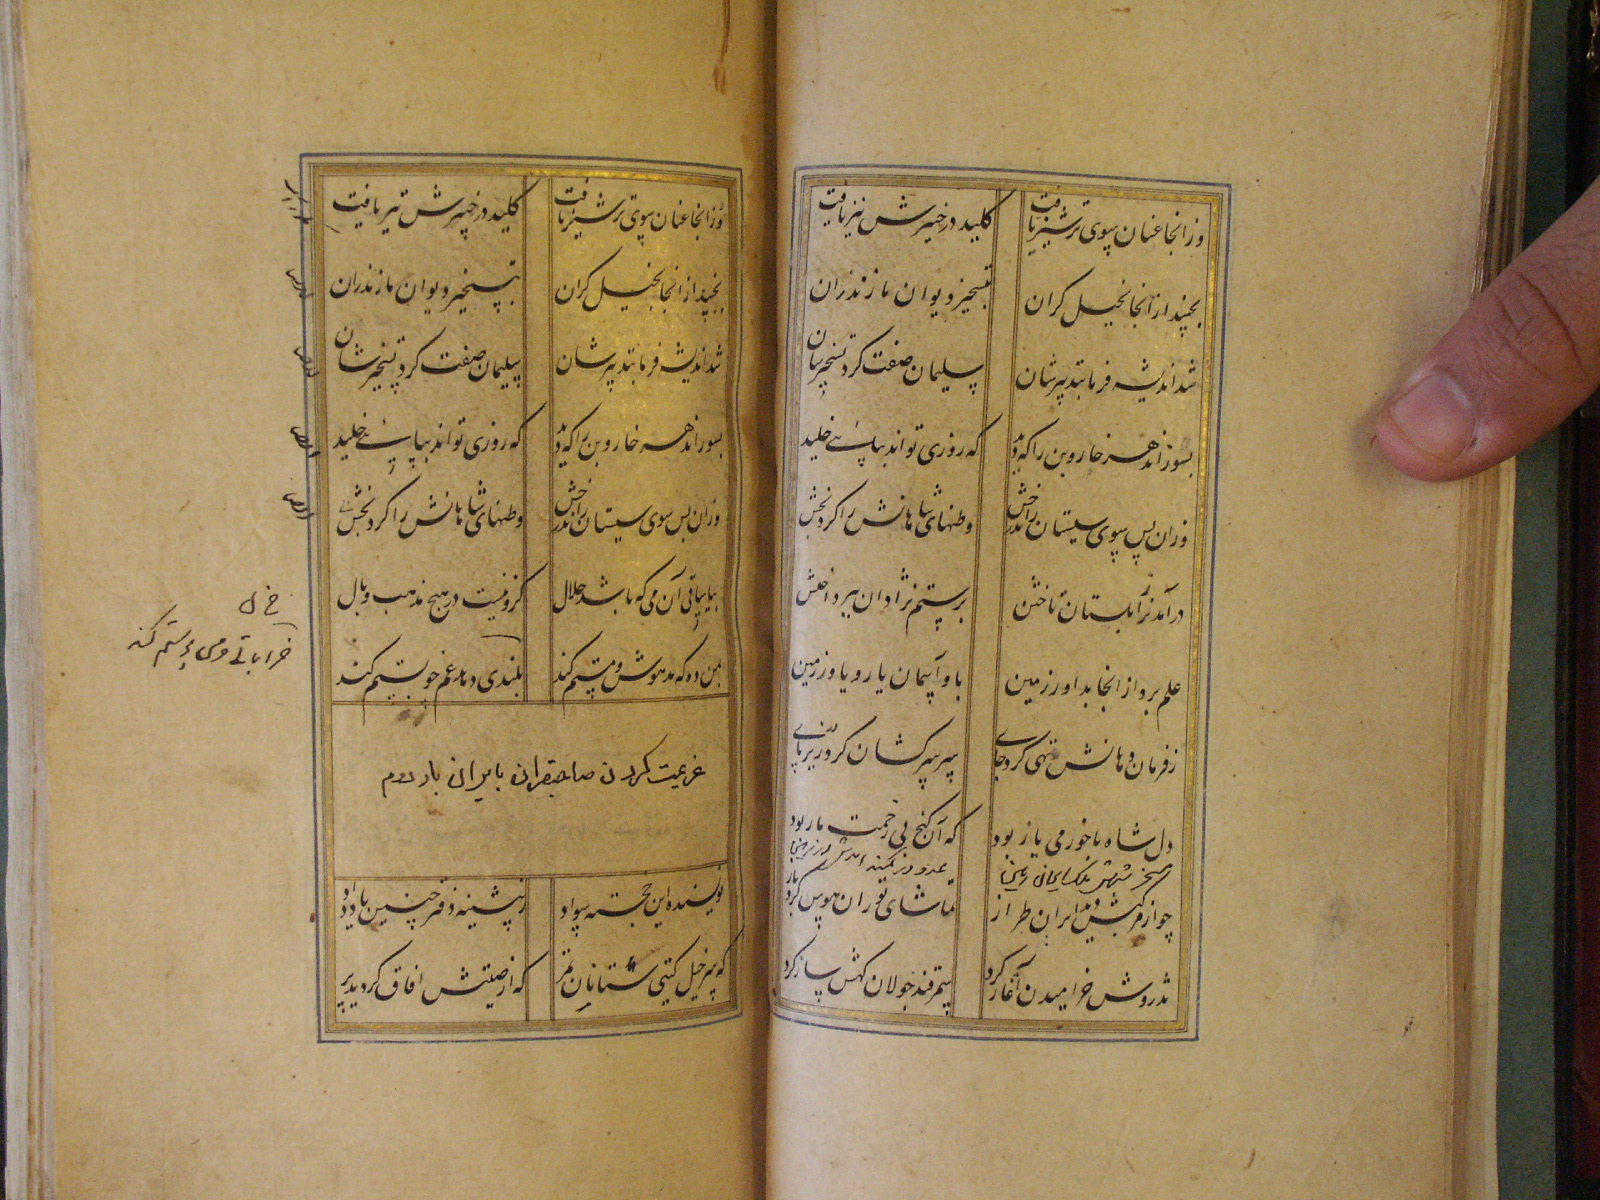 وز انجا عنان سوی ترشیز یافت کلید در خیبرش نیز یافت
بجنبید از آنجا بخیل کران بتسخیر دیوان مازندران
شد اندیشه فرما بتدبیرشان سلیمان صفت کرد تسخیرشان
بسوزاند هر خار و بن را که دید که روزی تواند بپای خلید
وزان پس سوی سیستان راند رخش وطنهای شاهانش را کرد بخش
درآمد ز زابلستان تاختن برستم نژادان بپرداختن
علم برد از انجا بداور زمین با و آسمان یار و یاور زمین
ز فرمان دهانش تهی کرد جای سپر سرکشان کرد در زیر پای
دل شاه با خورمی یاز بود که آن کنج بی زحمت مار بود
چو از سرکشش دید ایران طراز تماشای توران هوس کرد باز
تذروش خرامیدن آغاز کرد سمرقند جولان کهش ساز کرد
وز انجا عنان سوی ترشیز یافت کلید در خیبرش نیز یافت
بجنبید از انجا بخیل کران بتسخیر دیوان مازندران
شد اندیشه فرما بتدبیرشان سلیمان صفت کرد تسخیرشان
بسوزاند هر خار و بن را که دید که روزی تواند بپای خلید
وزان پس سوی سیستان راند رخش وطنهای شاهانش را کرد بخش
بیا ساقی آن می که باشد حلال کزو نیست در هیچ مذهب وبال
بمن ده که مدهوش و مستم کند بلندی دماغم خو پستم کند
خراباتی و می پرستم کند
عزیمت کردن صاحبقران بایران بار دوم
نویسنده این خجسته سواد ز پیشینه دفتر چنین یاد داد
که سر خیل کیتی ستانان تمر که از صیتش افاق کردید پر